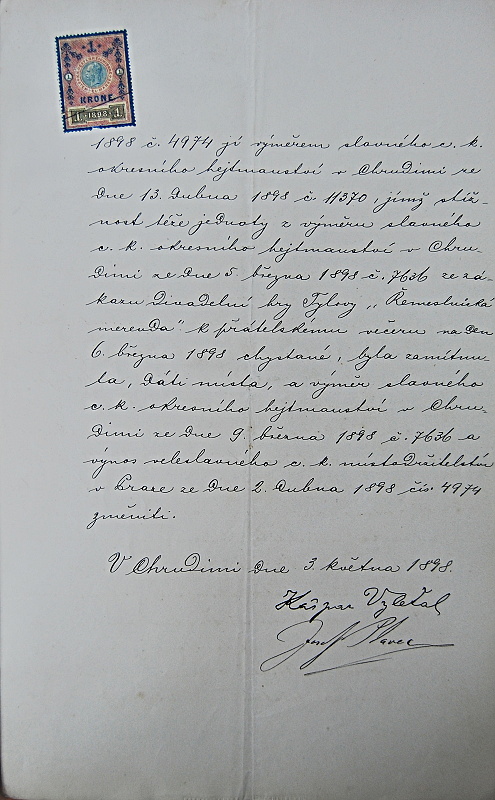 1
KRONE
1 1898 1
1898 č. 4974 jí výměrem slavného c. k.
okresního hejtmanství v Chrudimi ze
dne 13. dubna 1898 č. 11370, jímž stíž-
nost téže jednoty z výměru slavného
c. k. okresního hejtmanství v Chru-
dimi ze dne 5 března 1898 č. 7636 ze zá-
kazu divadelní hry Tylovy „Řemeslnická
merenda" k přátelskému večeru na den
6. března 1898 chystané, byla zamítnu-
ta, dáti místa, a výměr slavného
c. k. okresního hejtmanství v Chru-
dimi ze dne 9. března 1898 č. 7636 a
výnos veleslavného c. k. místodržitelství
v Praze ze dne 2. dubna 1898 čís. 4974
změniti.
V Chrudimi dne 3. května 1898.
Kašpar Vzlețal
Josef